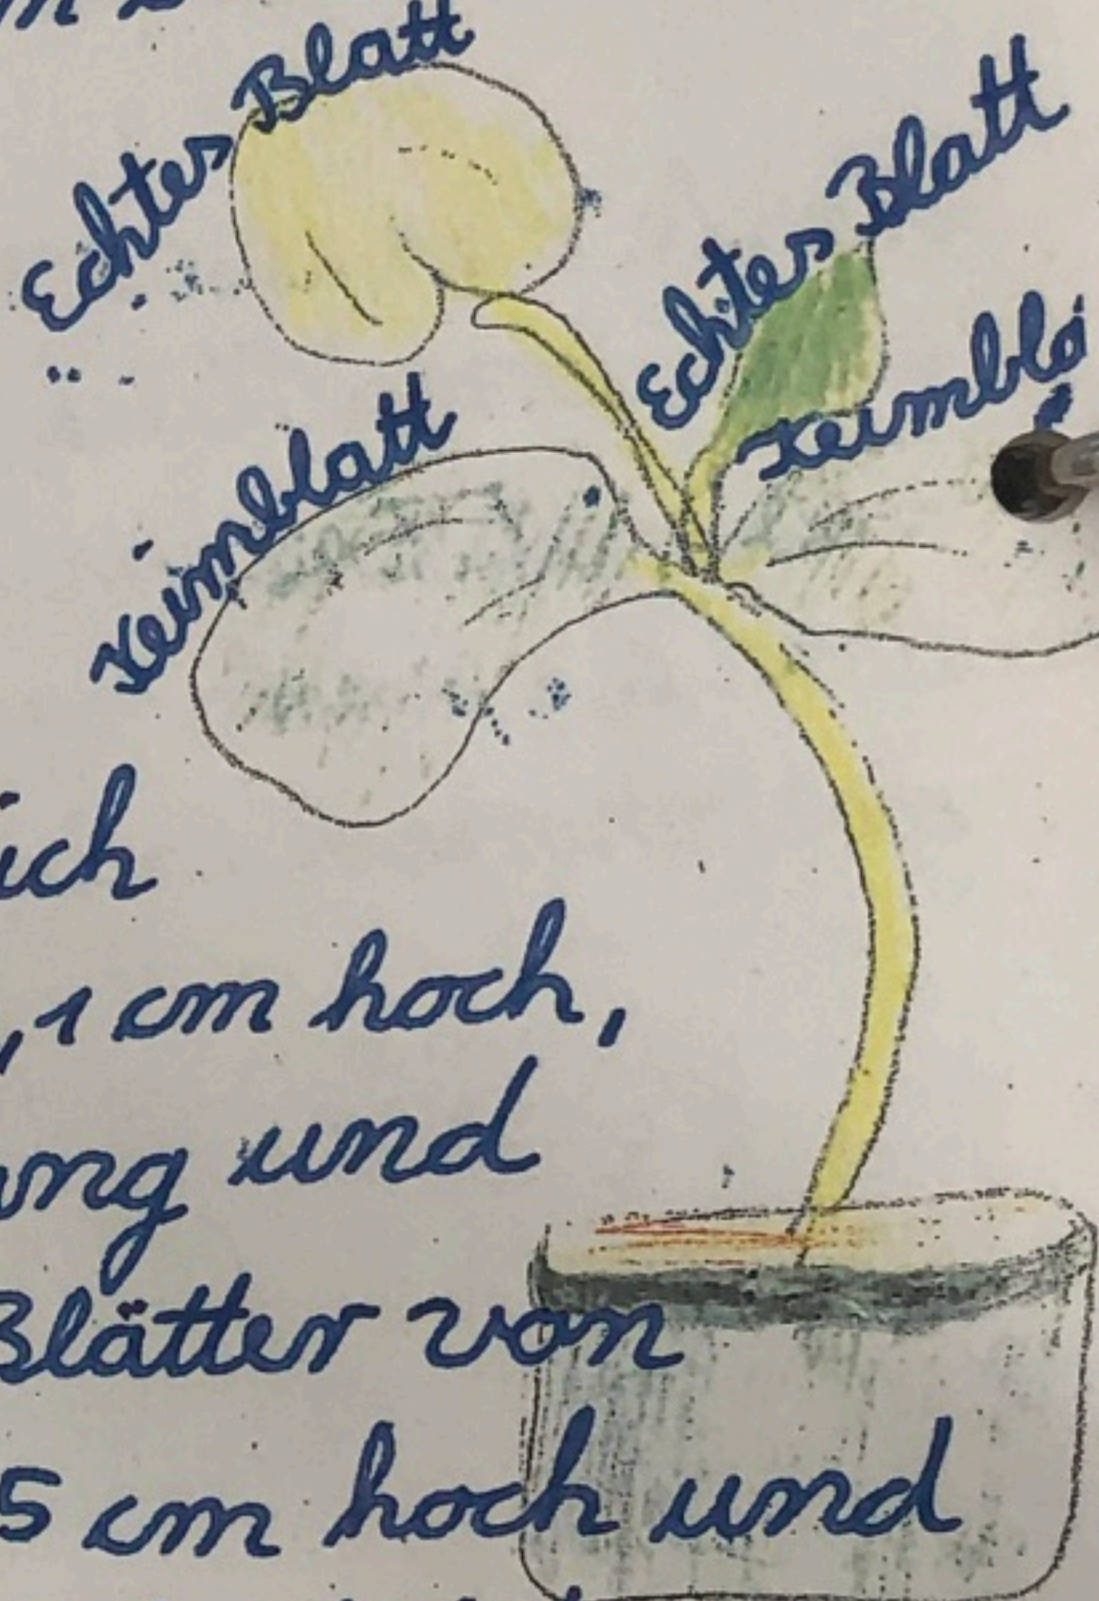 Echtes Blatt
Echtes Blatt
Keimblatt
Keimblä
ich
,1 cm hoch,
ung und
Blätter von
5 cm hoch und